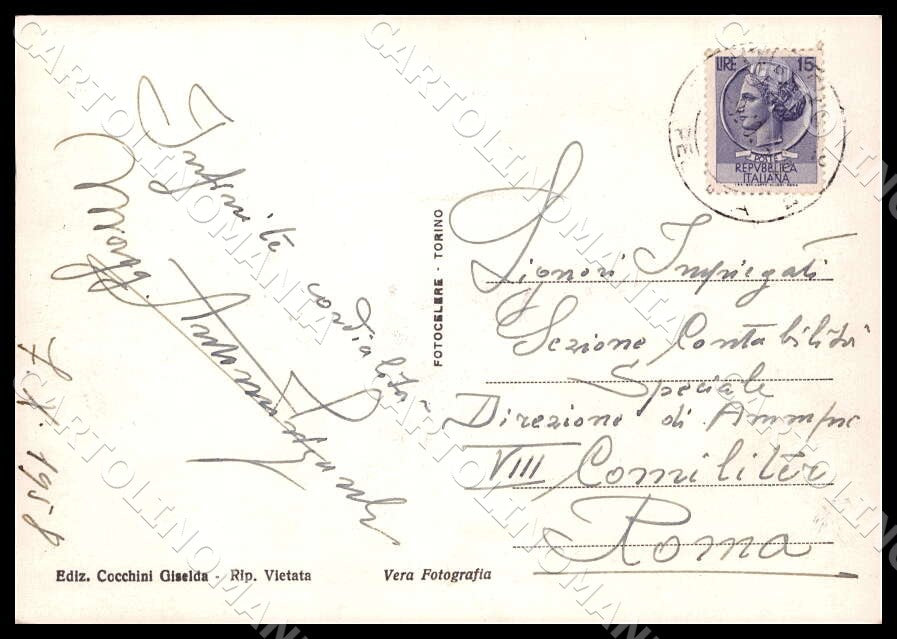 LIRE 15
POSTE
REPVBBLICA
ITALIANA
Infinite
cordialità
Magg.
7. 1958
FOTOCELERE - TORINO
Signori Impiegati
Sezione Contabilità
Speciale
Direzione di Amm/ne
VIII Comiliter
Roma
Ediz. Cocchini Giselda - Rip. Vietata
Vera Fotografia
CARTOLINOMANIA